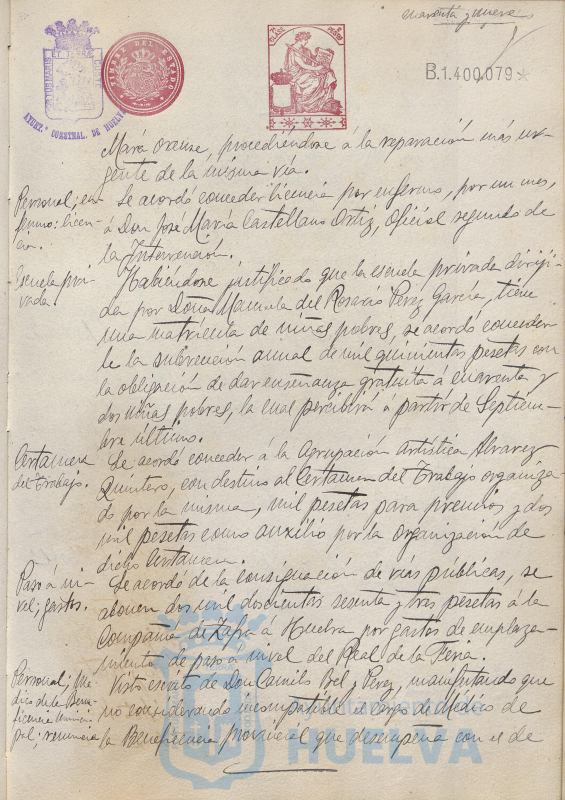 cuarenta y nueve
B.1.400.079
TIMBRE DEL ESTADO
AYUNT. CONSTNAL. DE HUELVA
CLASE
María orense, procediéndose á la reparación más ur-
gente de la misma vía.
Personal; en-
fermo: licen-
cia.
Se acordó conceder licencia por enfermo, por un mes,
á Don José María Castellano Ortiz, Oficial segundo de
la Intervención.
Escuela pri-
vada.
Habiéndose justificado que la escuela privada dirigi-
da por Doña Manuela del Rosario Perez García, tiene
una matrícula de niñas pobres, se acordó conceder
le la subvención anual de mil quinientas pesetas con
la obligación de dar enseñanza gratuita á cuarenta y
dos niñas pobres, la cual percibirá á partir de Septiem-
bre último.
Certamen
del Trabajo.
Se acordó conceder á la Agrupación artística Alvarez
Quintero, con destino al Certamen del Trabajo organiza-
do por la misma, mil pesetas para premios y dos
mil pesetas como auxilio por la organización de
dicho Certamen.
Paso á ni-
vel; gastos.
Se acordó de la consignación de vías públicas, se
abonen dos mil doscientas sesenta y tres pesetas á la
Compañía de Zafra á Huelva por gastos de emplaza-
miento de paso á nivel del Real de la Feria.
Personal; Mé-
dico de la Bene-
ficencia munici-
pal; renuncia
Visto escrito de Don Camilo Bel y Perez, manifestando que
no considerando incompatible el cargo de Médico de
la Beneficencia provincial que desempeña con el de
HUELVA